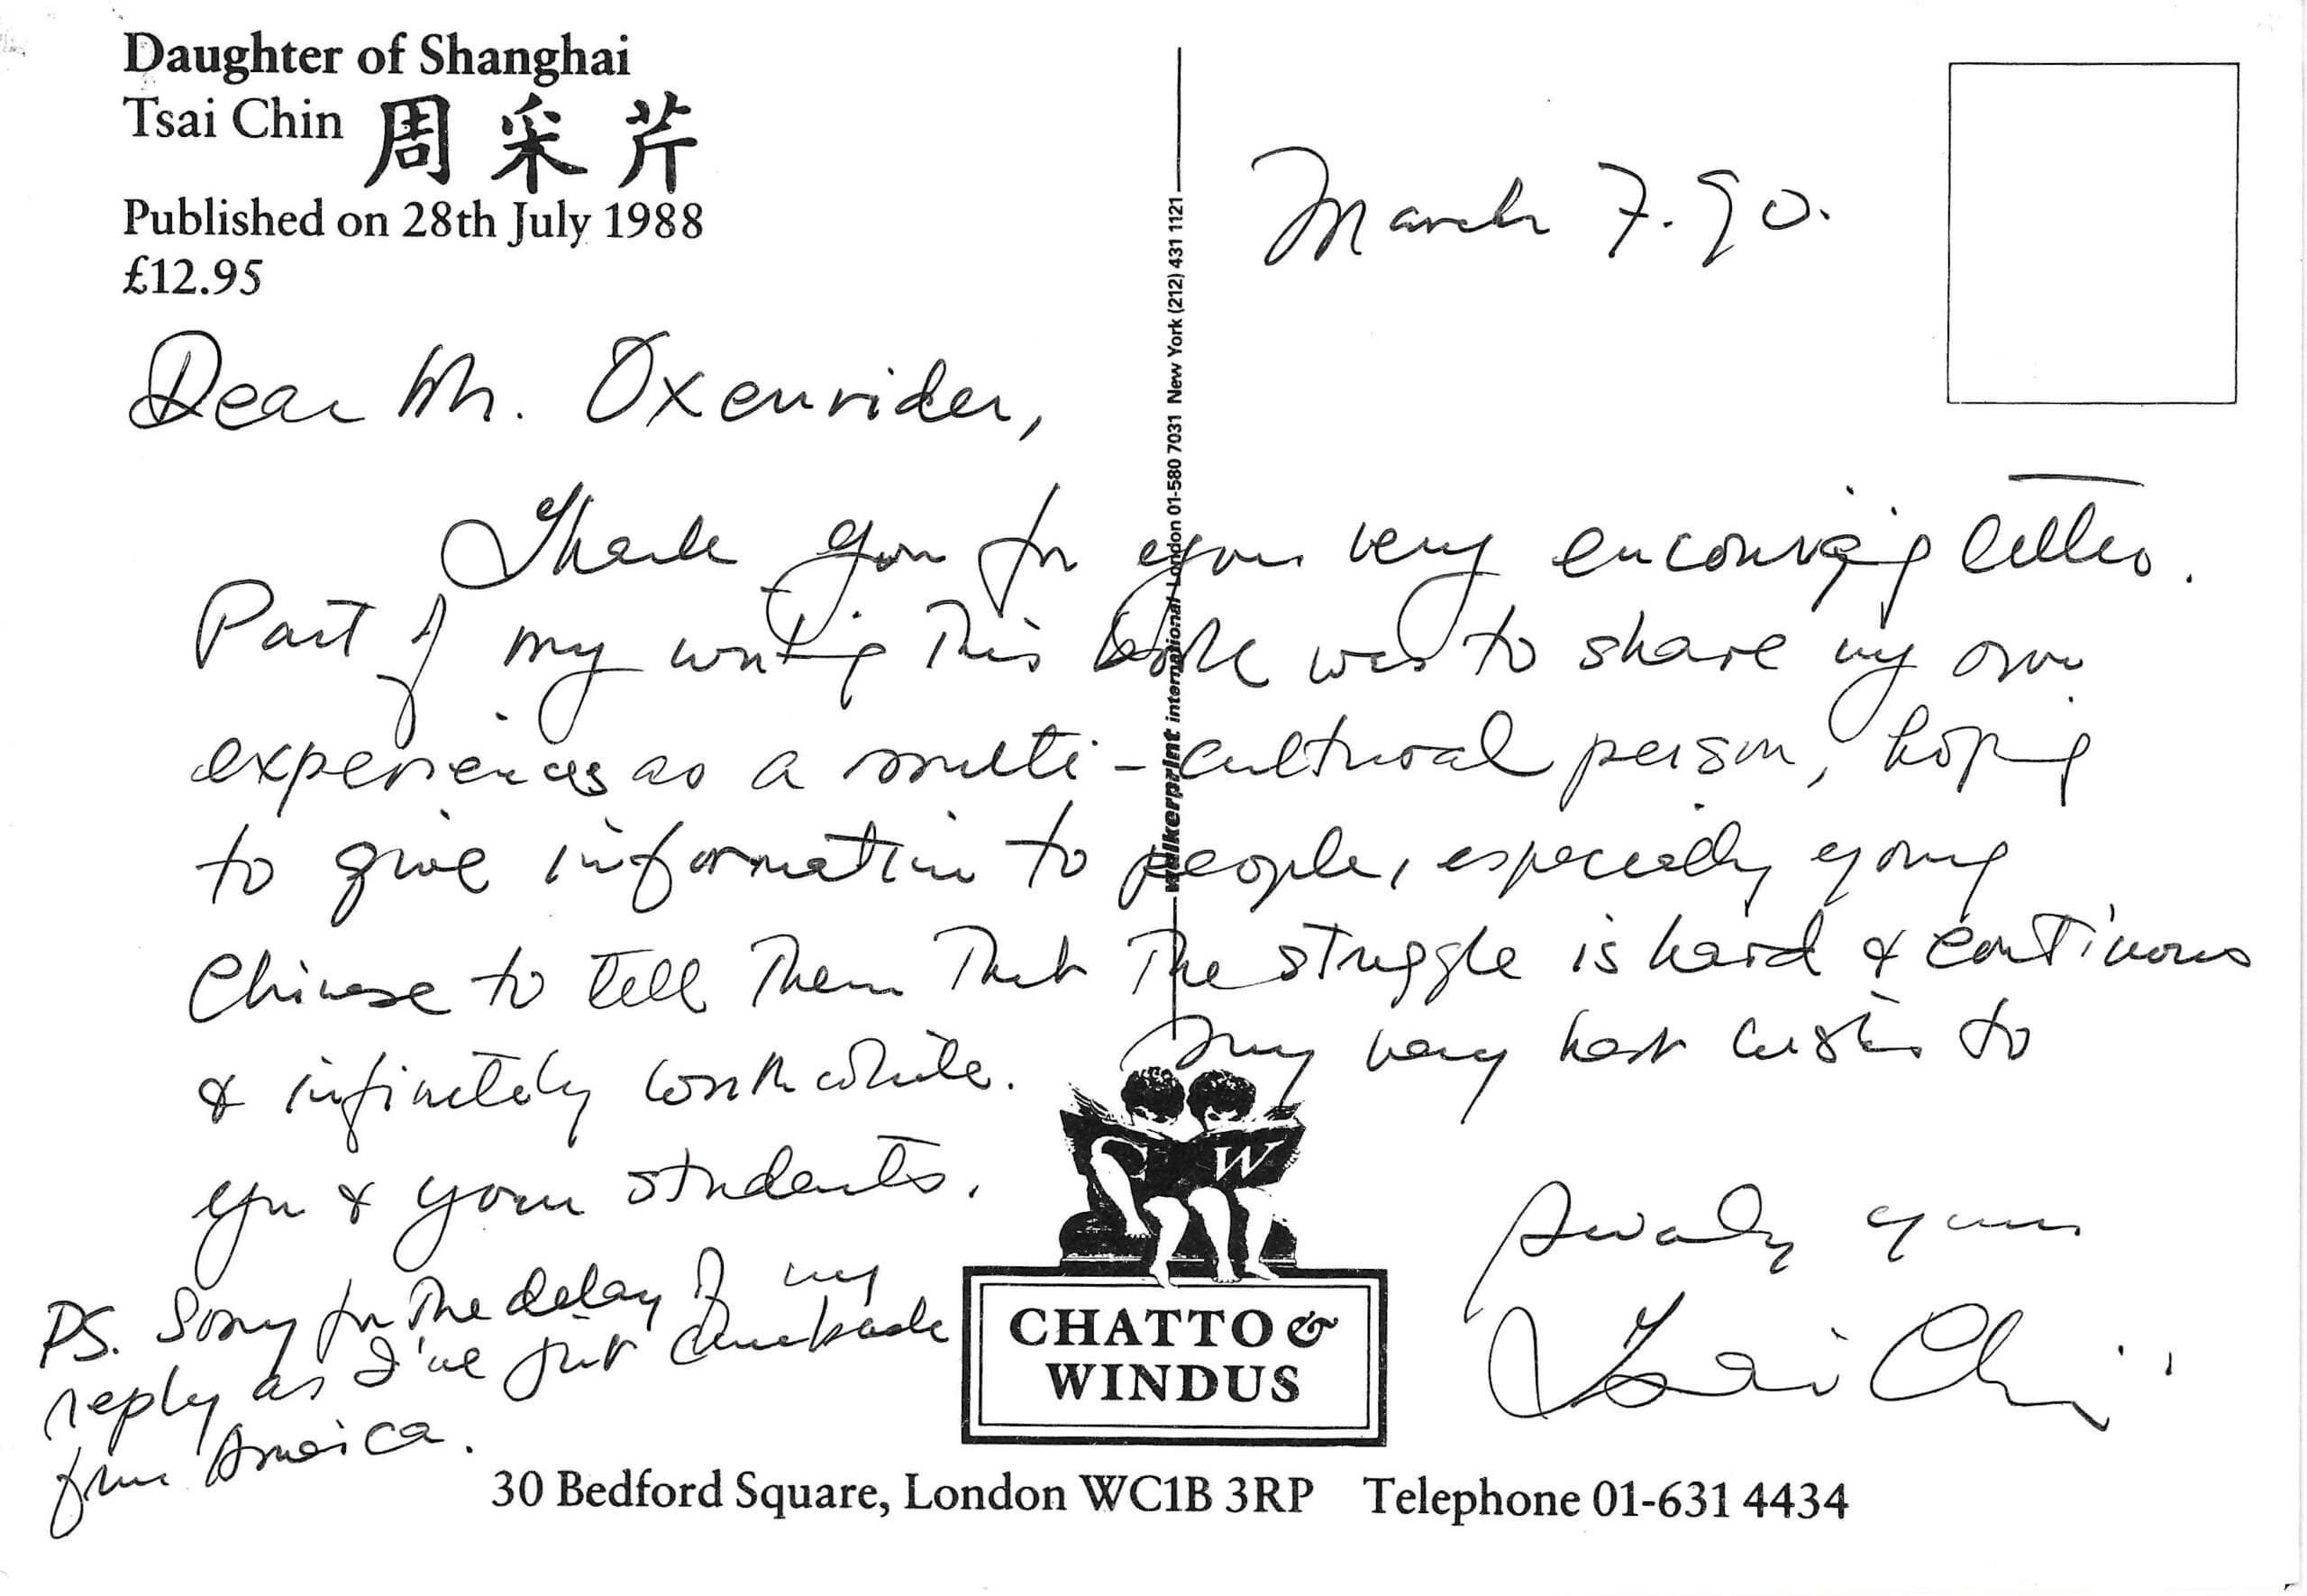 Daughter of Shanghai
Tsai Chin 周采芹
Published on 28th July 1988
£12.95
March 7. 90.
Dear Mr. Oxenrider,
Thank you for your very encouraging letter.
Part of my writing this book was to share my own
experiences as a multi-cultural person, hoping
to give information to people, especially young
Chinese to tell them that the struggle is hard & continuous
& infinitely worthwhile. My very best wishes to
you & your students.
Sincerely yours
Tsai Chin
PS. Sorry for the delay of my
reply as I've just come back
from America.
walkerprint international London 01-580 7031 New York (212) 431 1121
W
CHATTO &
WINDUS
30 Bedford Square, London WC1B 3RP Telephone 01-631 4434